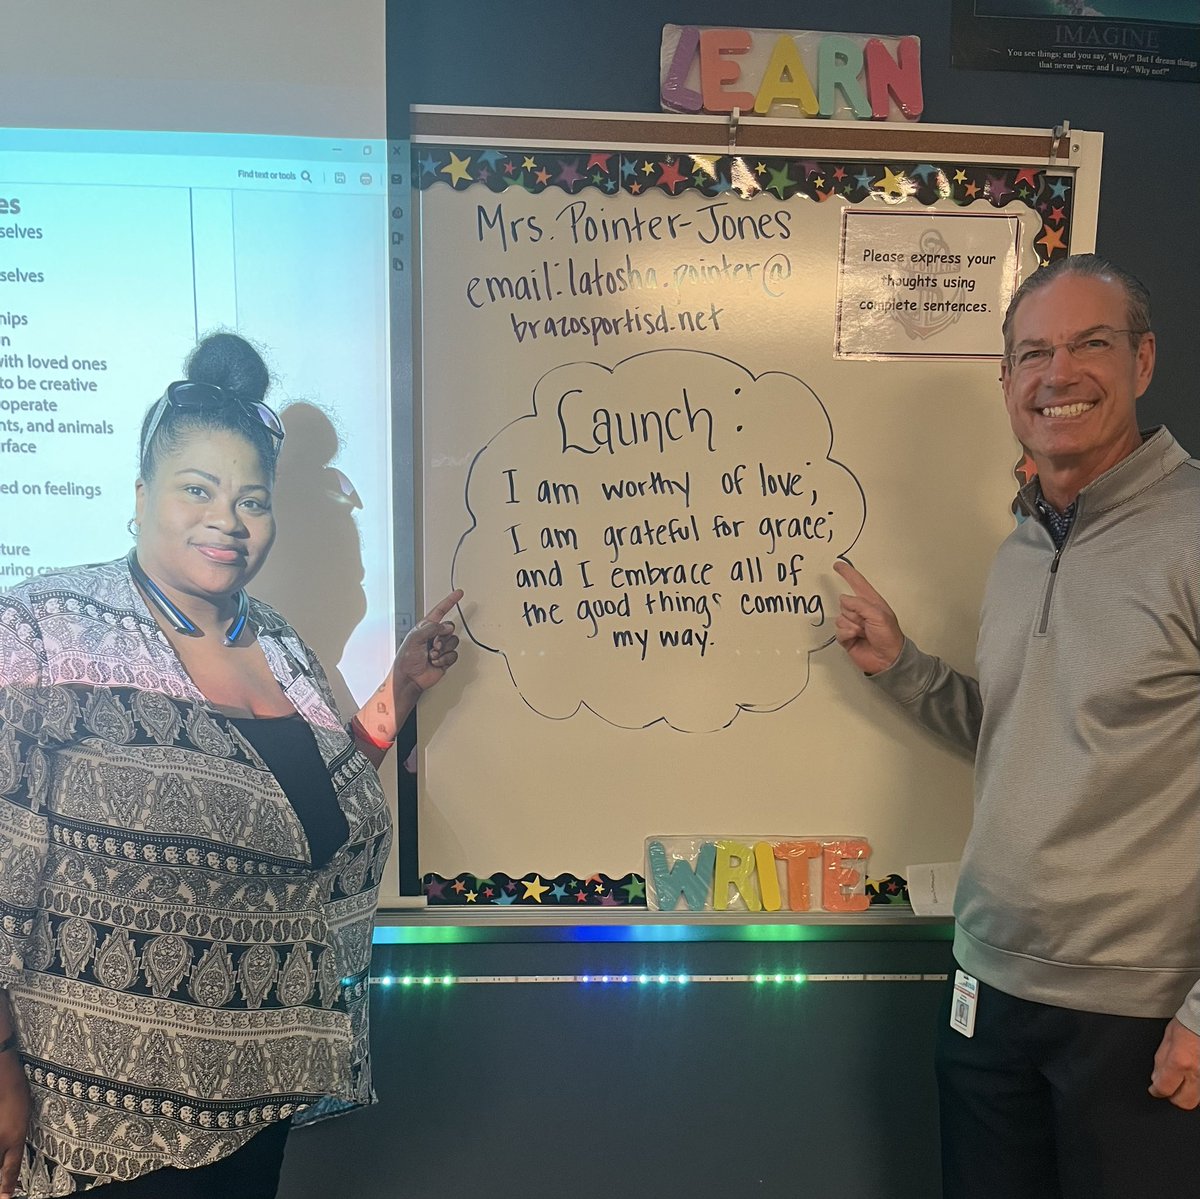 LEARN
IMAGINE
You see things; and you say, "Why?" But I dream things
that never were; and I say, "Why not?"
Find text or tools
es
selves
selves
hips
n
with loved ones
to be creative
operate
nts, and animals
rface
ed on feelings
ture
uring
Mrs. Pointer-Jones
email: latosha.pointer@
brazosportisd.net
Please express your
thoughts using
complete sentences.
Launch:
I am worthy of love;
I am grateful for grace;
and I embrace all of
the good things coming
my way.
WRITE